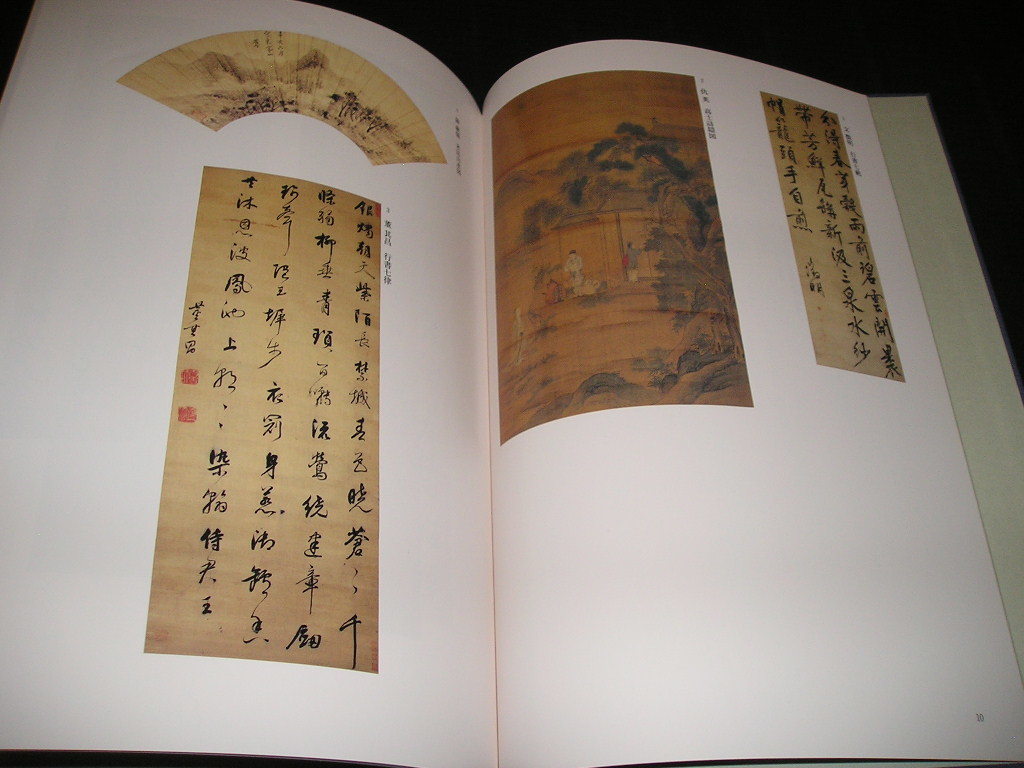 1 文徵明 行書七絶
分得春芽穀雨前碧雲開裹
帶芳鮮瓦缾新汲三泉水紗
帽籠頭手自煎 徵明
2 仇英
3 董其昌 行書七律
銀燭朝天紫陌長禁城春色曉蒼〻千
條弱柳垂青瑣百囀流鶯繞建章劍
珮聲隨玉墀步衣冠身惹御爐香
共沐恩波鳳池上朝〻染翰侍君王
董其昌
10